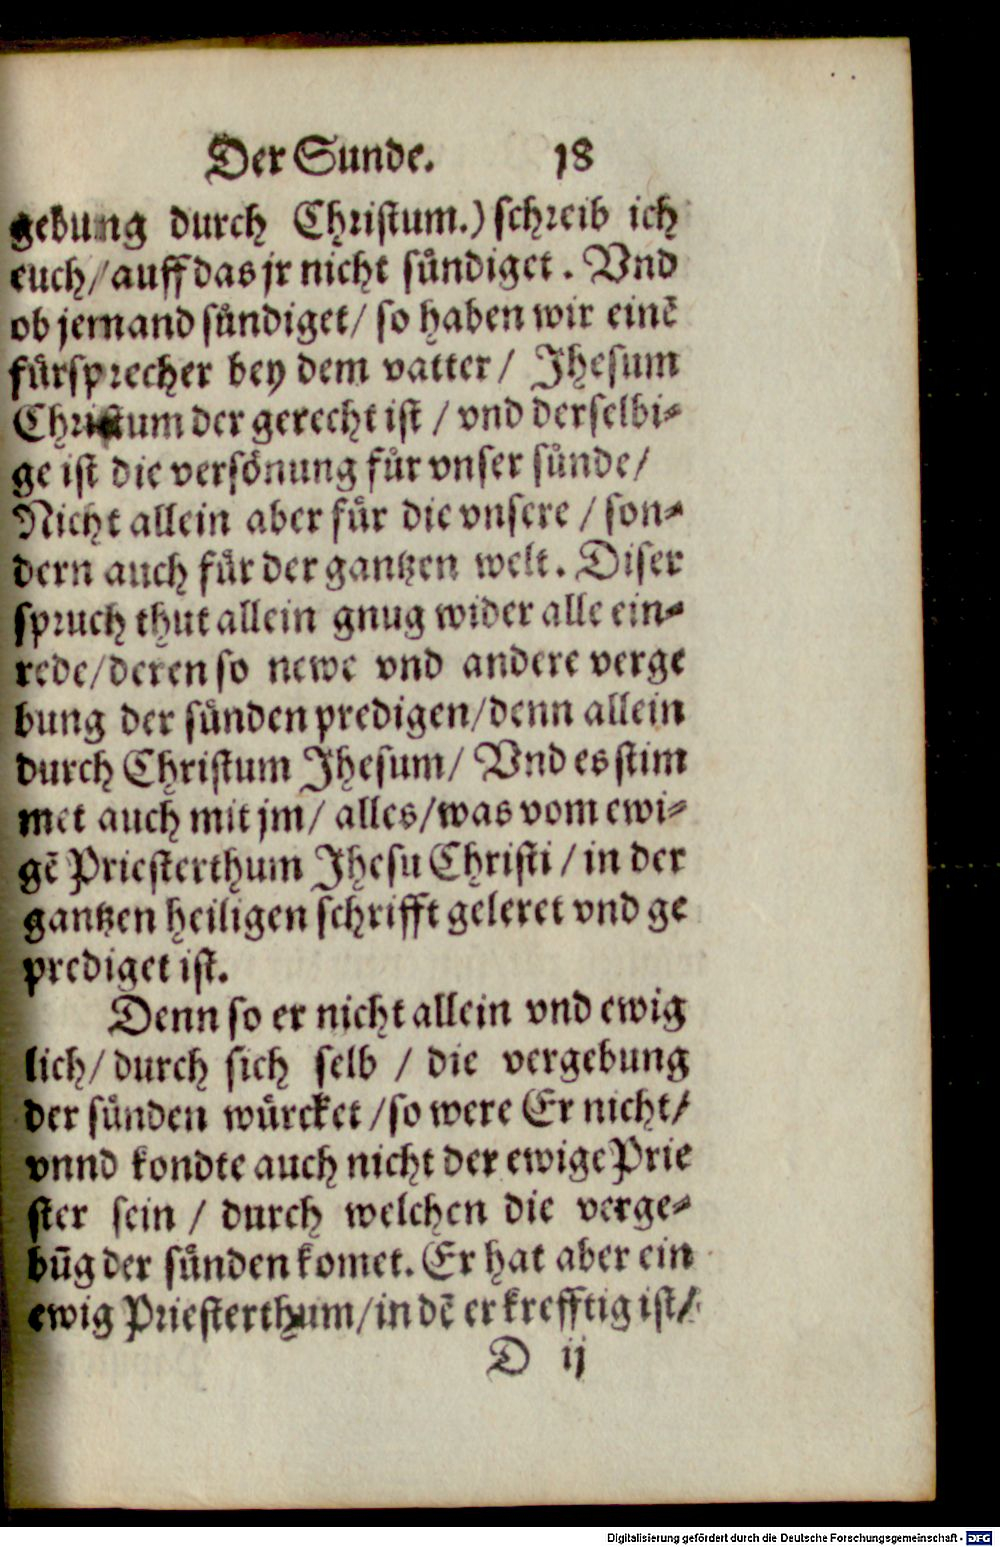 Der Sunde. 18
gebung durch Christum.) schreib ich
euch/ auff das jr nicht sündiget. Vnd
ob jemand sündiget/ so haben wir einē
fürsprecher bey dem vatter/ Jhesum
Christum der gerecht ist / vnd derselbi⸗
ge ist die versönung für vnser sünde/
Nicht allein aber für die vnsere / son⸗
dern auch für der gantzen welt. Diser
spruch thut allein gnug wider alle ein⸗
rede/ deren so newe vnd andere verge
bung der sünden predigen/ denn allein
durch Christum Jhesum/ Vnd es stim
met auch mit jm/ alles/ was vom ewi⸗
gē Priesterthum Jhesu Christi / in der
gantzen heiligen schrifft geleret vnd ge
prediget ist.
Denn so er nicht allein vnd ewig
lich/ durch sich selb / die vergebung
der sünden würcket / so were Er nicht/
vnnd kondte auch nicht der ewige Prie
ster sein / durch welchen die verge⸗
būg der sünden komet. Er hat aber ein
ewig Priesterthum/ in dē er krefftig ist/
D ij
Digitalisierung gefördert durch die Deutsche Forschungsgemeinschaft - DFG